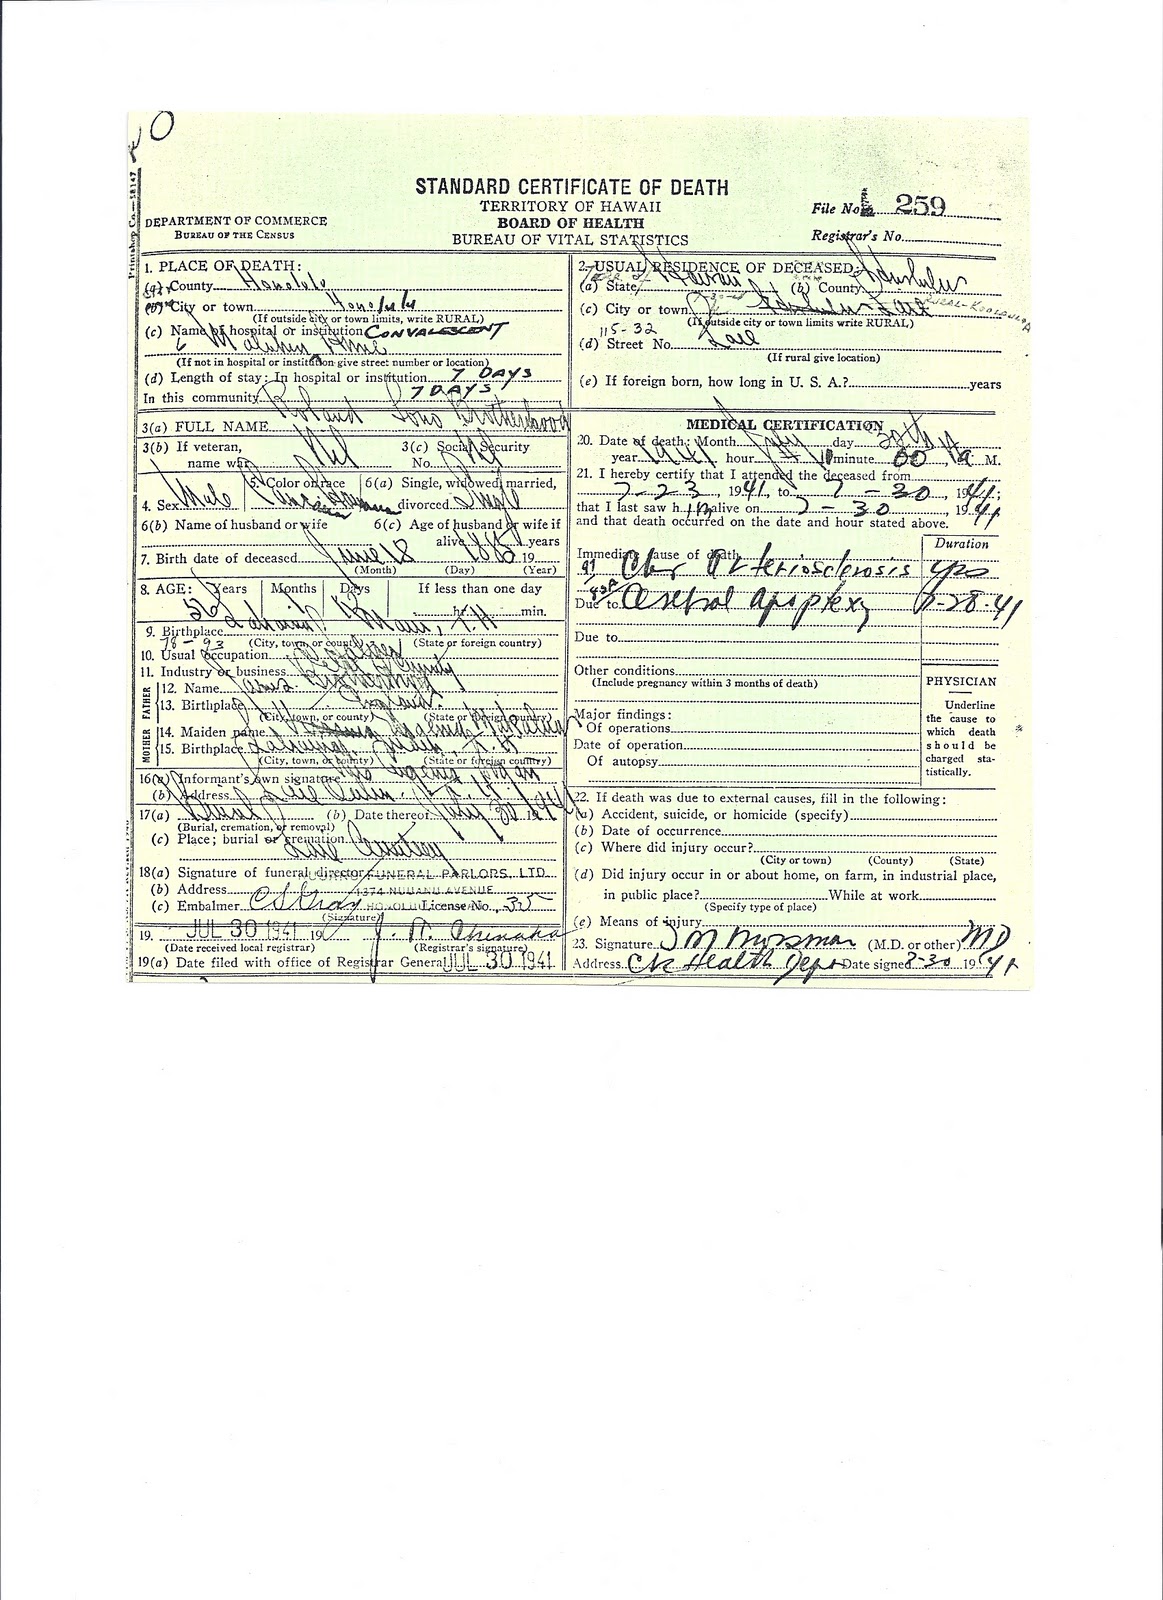 STANDARD CERTIFICATE OF DEATH
TERRITORY OF HAWAII
BOARD OF HEALTH
BUREAU OF VITAL STATISTICS
DEPARTMENT OF COMMERCE
BUREAU OF THE CENSUS
File No. 259
Registrar's No.
1. PLACE OF DEATH:
(a) County Honolulu
(b) City or town Honolulu
(If outside city or town limits, write RURAL)
(c) Name of hospital or institution CONVALESCENT
Home
(If not in hospital or institution give street number or location)
(d) Length of stay: In hospital or institution 7 DAYS
In this community 7 DAYS
2. USUAL RESIDENCE OF DECEASED:
(a) State Hawaii (b) County Honolulu
(c) City or town Honolulu
(If outside city or town limits write RURAL)
115-32
(d) Street No. Laie
(If rural give location)
(e) If foreign born, how long in U. S. A.? years
3(a) FULL NAME Roland Lono Brotherhood
3(b) If veteran, name war Nil
3(c) Social Security No. Nil
4. Sex Male
5. Color or race
6(a) Single, widowed, married, divorced Single
6(b) Name of husband or wife
6(c) Age of husband or wife if alive years
7. Birth date of deceased June 18 19
(Month) (Day) (Year)
8. AGE: Years Months Days If less than one day
56 hr. min.
9. Birthplace Lahaina Maui, T.H
(City, town, or county) (State or foreign country)
78-93
10. Usual occupation
11. Industry or business County
FATHER
12. Name
13. Birthplace England
(City, town, or county) (State or foreign country)
MOTHER
14. Maiden name
15. Birthplace Lahaina, Maui, T. H
(City, town, or county) (State or foreign country)
16(a) Informant's own signature
(b) Address Laie
17(a) Burial (b) Date thereof July 30 1941
(Burial, cremation, or removal)
(c) Place; burial or cremation Laie Cemetery
18(a) Signature of funeral director NUUANU FUNERAL PARLORS, LTD.
(b) Address 1374 NUUANU AVENUE
(c) Embalmer C S Gray License No. 35
(Signature)
19. JUL 30 1941 19
(Date received local registrar) (Registrar's signature)
19(a) Date filed with office of Registrar General JUL 30 1941
MEDICAL CERTIFICATION
20. Date of death: Month July day
year 1941 hour minute 00 A M.
21. I hereby certify that I attended the deceased from
7-23, 1941, to 7-30 1941;
that I last saw him alive on 7-30, 1941
and that death occurred on the date and hour stated above.
Duration
Immediate cause of death
97 Chr Arteriosclerosis yrs
83A
Due to Cerebral apoplexy 7-28-41
Due to
Other conditions
(Include pregnancy within 3 months of death)
Major findings:
Of operations
Date of operation
Of autopsy
PHYSICIAN
Underline
the cause to
which death
should be
charged sta-
tistically.
22. If death was due to external causes, fill in the following:
(a) Accident, suicide, or homicide (specify)
(b) Date of occurrence
(c) Where did injury occur?
(City or town) (County) (State)
(d) Did injury occur in or about home, on farm, in industrial place,
in public place? While at work
(Specify type of place)
(e) Means of injury
23. Signature (M.D. or other) MD
Address Health Dept Date signed 7-30 1941